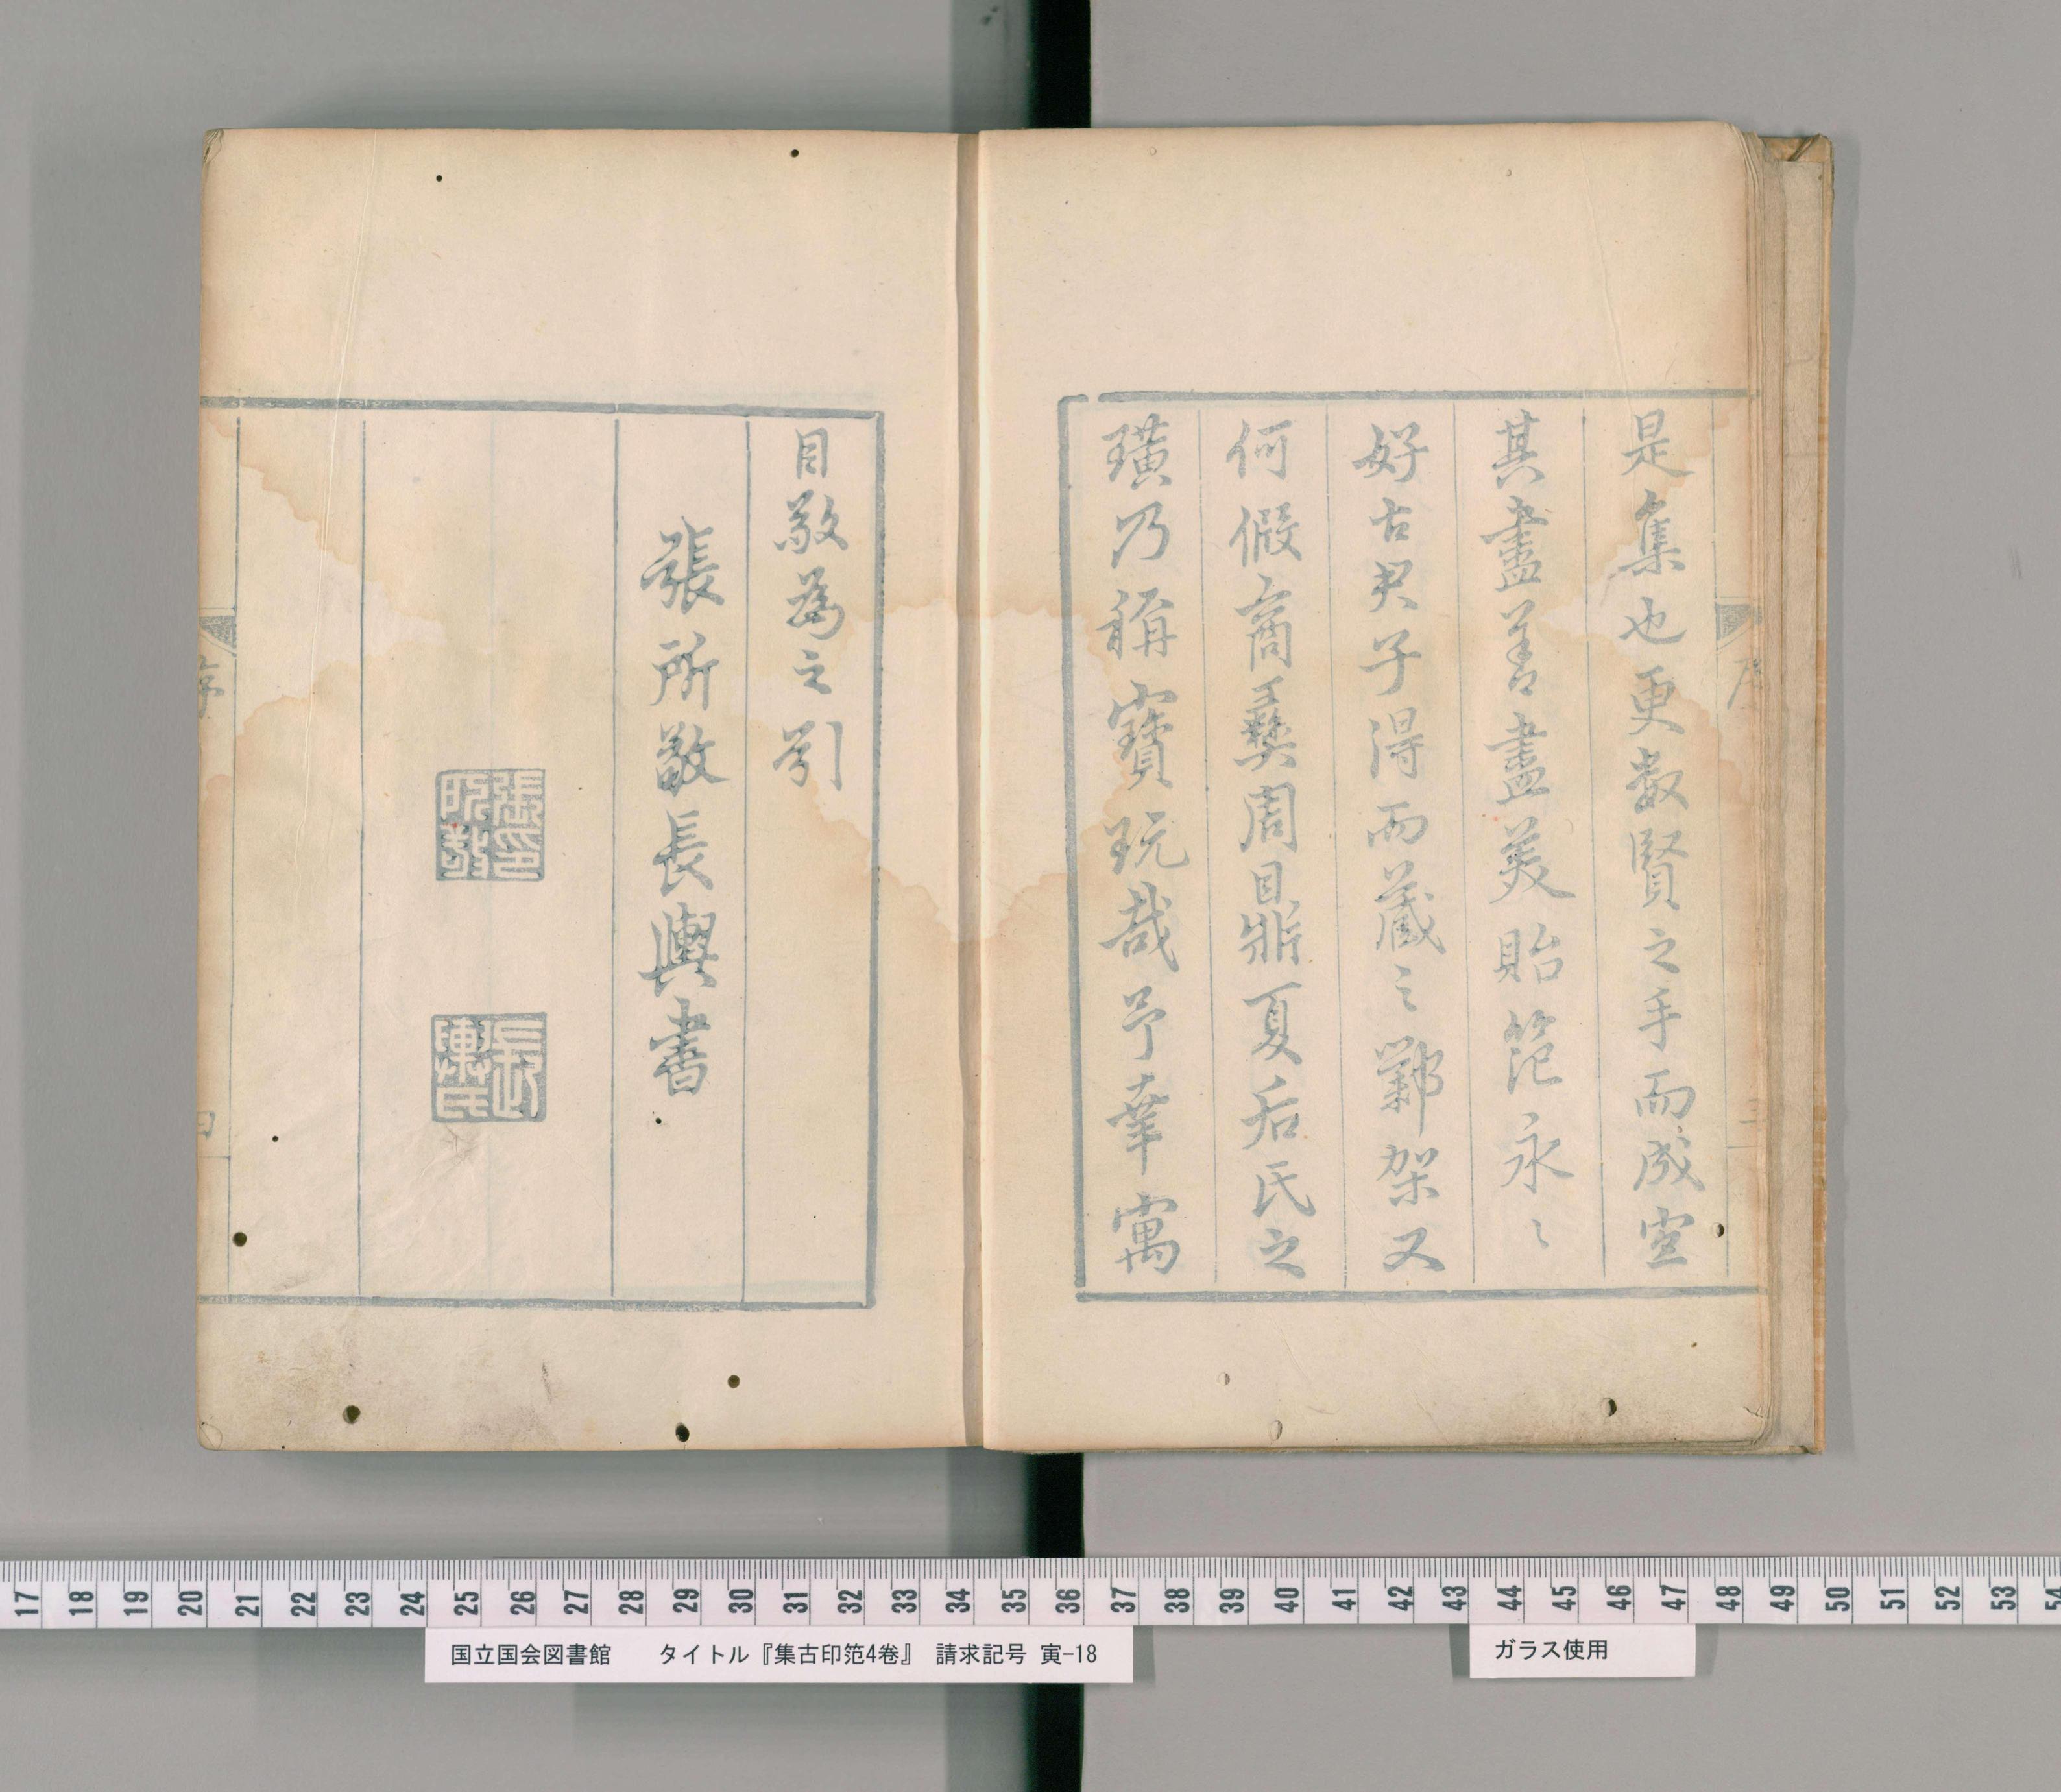 是集也更数賢之手而成宜
其盡善盡美貽笵永〻
好古君子得而藏之鄴架又
何假商彝周鼎夏后氏之
璜乃稱寶玩哉予幸寓
目敬為之引
張所敬長輿書
張印所敬
長輿氏
序
序
三
四
17 18 19 20 21 22 23 24 25 26 27 28 29 30 31 32 33 34 35 36 37 38 39 40 41 42 43 44 45 46 47 48 49 50 51 52 53 54
国立国会図書館 タイトル『集古印笵4巻』 請求記号 寅-18
ガラス使用